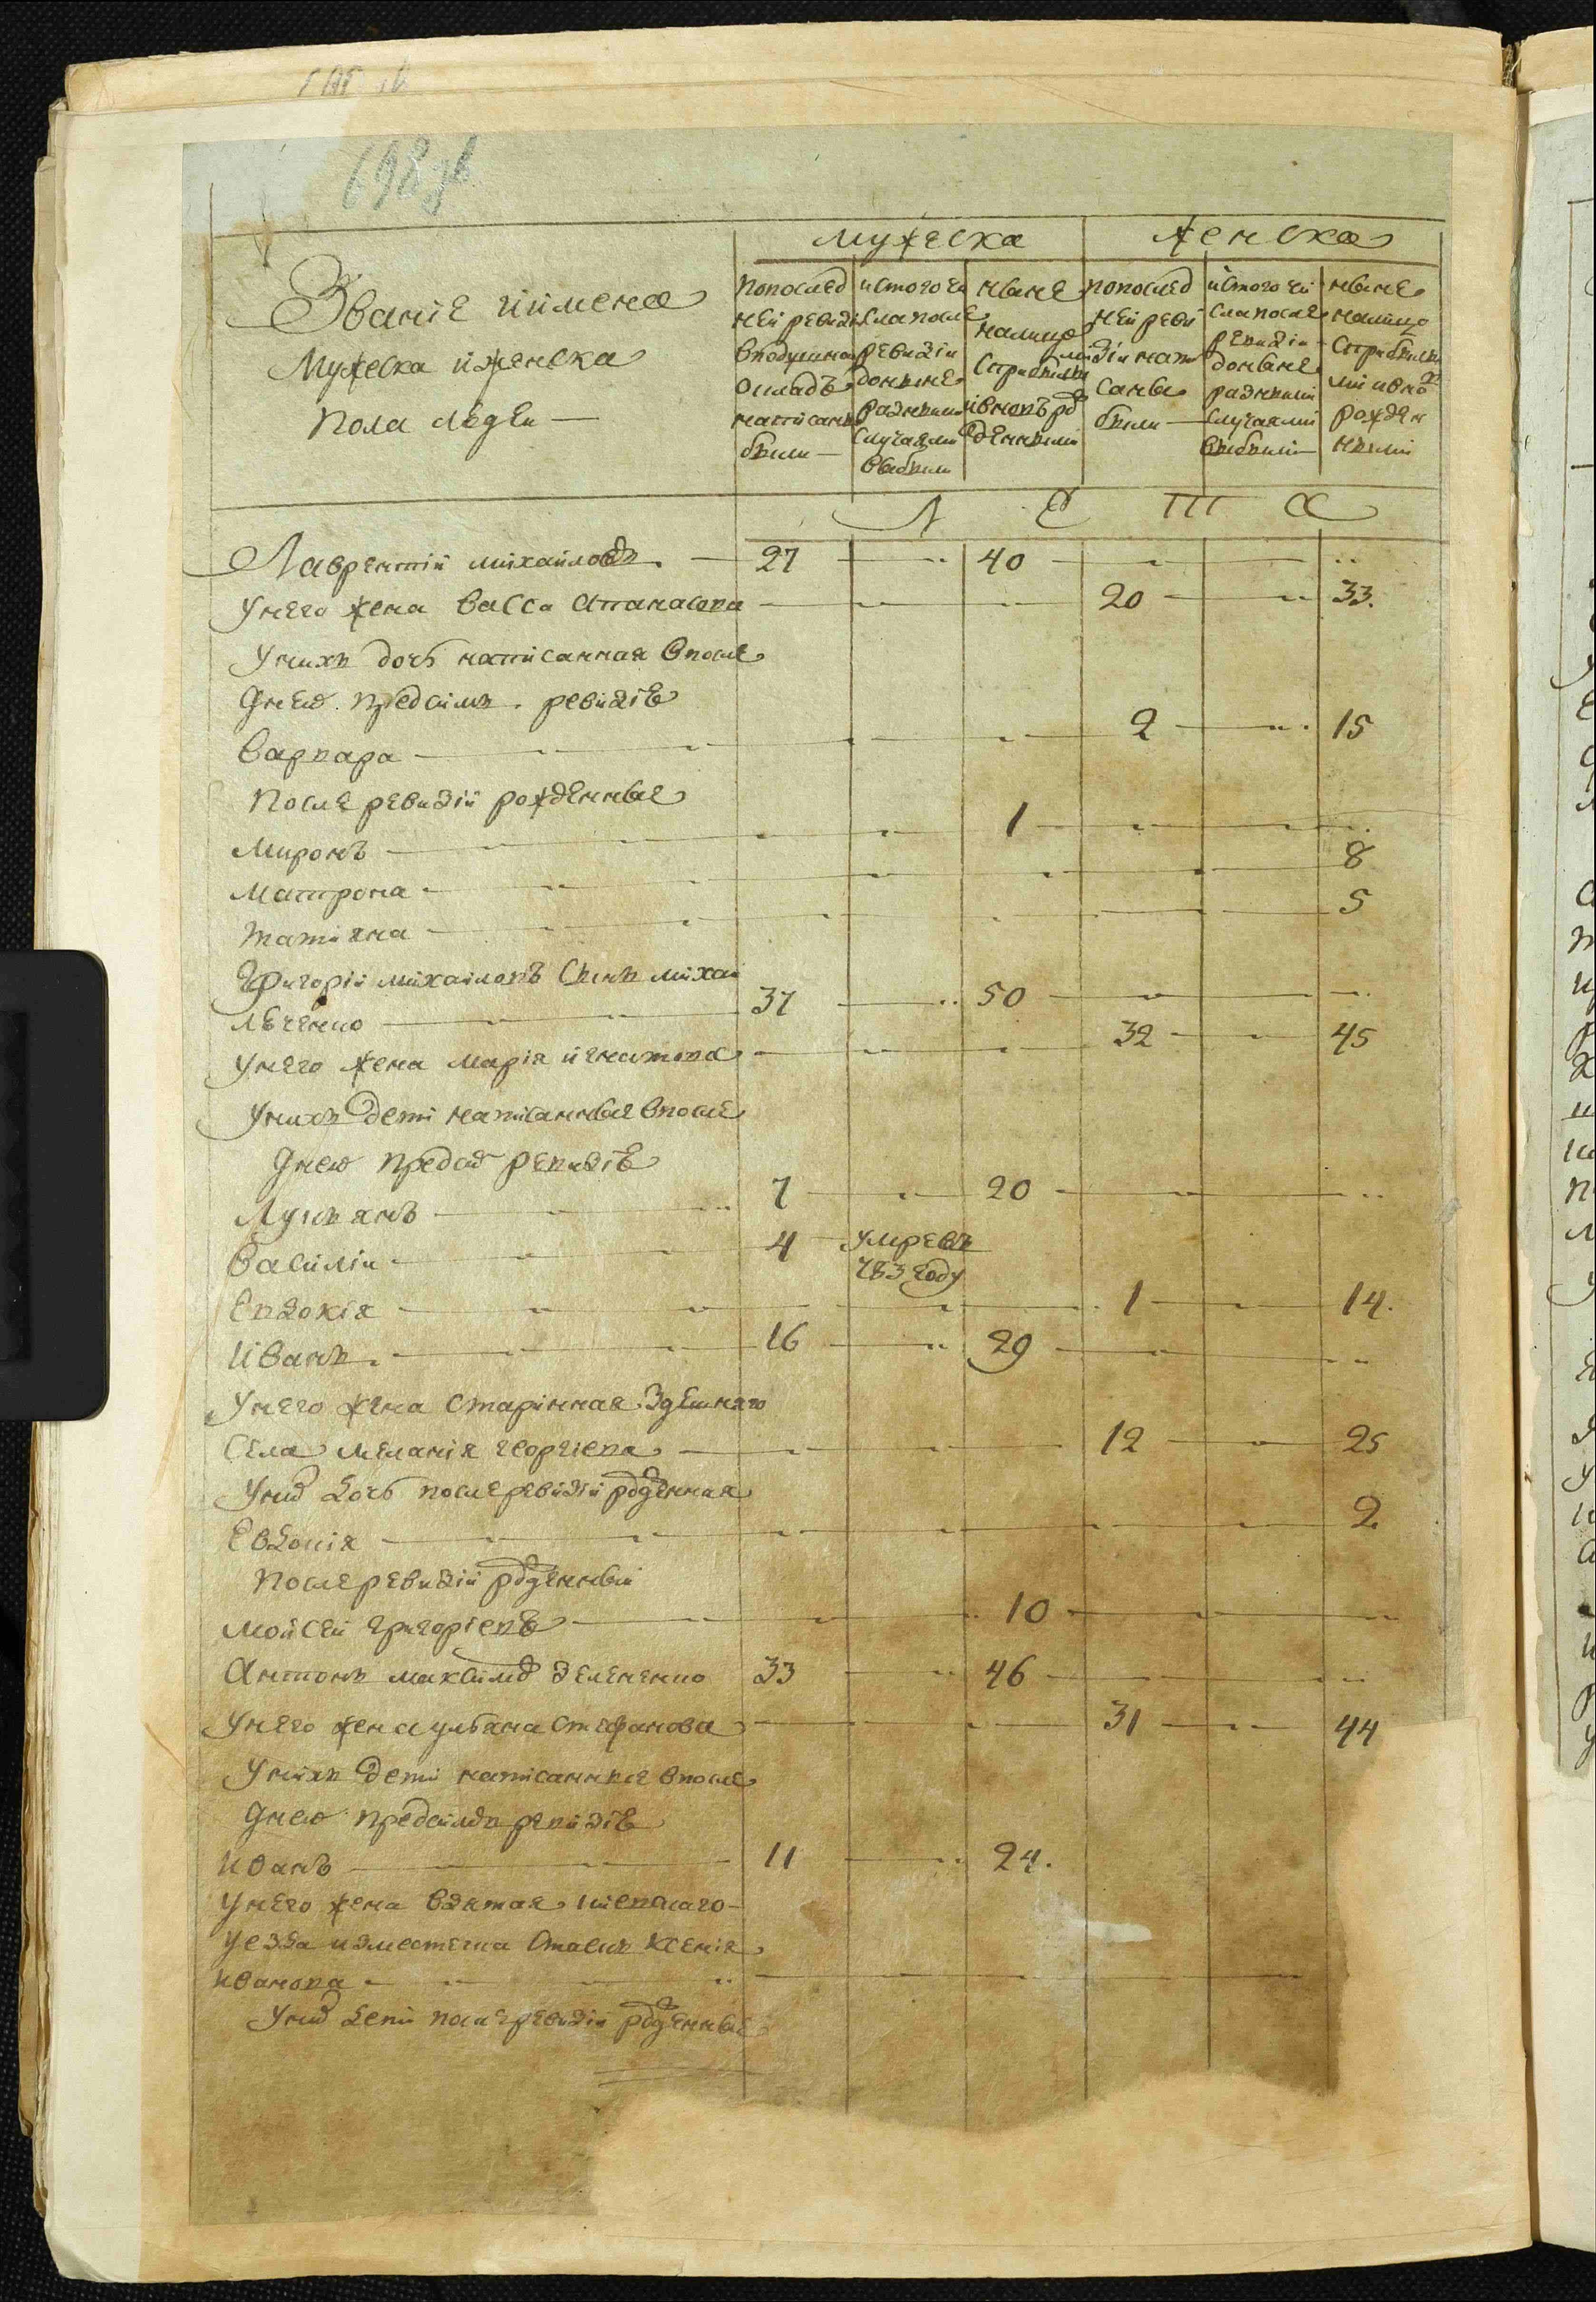 698 об
мужеска женска
Званіе и имена
мужеска и женска
пола людей
по послед ней ревизіи в подушной окладъ написаны были
и с того числа после ревизіи до ныне разными случаями выбыли
ныне на лицо с прибылыми и вновь рожденными
по послед ней ревизіи написаны были
и с того числа после ревизіи до ныне разными случаями выбыли
ныне на лицо с прибылыми и вновь рожденными
Л Е Т А
Лаврентій михайловъ 27 40
у него жена васса Апанасова 20 33.
у нихъ дочь написанная в после
днею пред симъ ревизіе
варвара 2 15
после ревизіи рожденные
миронъ 1
матрона 8
татіяна 5
Григорій михайловъ сынъ михай
лѣченко 37 50
у него жена марія игнатова 32 45
у нихъ дети написанные в после
днею пред сѣ ревизіе
Лукянъ 7 20
василій 4 умре въ
783 году
Евдокія 1 14.
иванъ 16 29
у него жена старинная здешняго
села меланія георгіева 12 25
у них дочь после ревизіи рожденная
Евдокія 2
после ревизіи рожденный
мойсей григоріевъ 10
Антонъ максимов зелененко 33 46
у него жена ульяна стефанова 31 44
у нихъ дети написанные в после
днею пред симъ ревизіе
иванъ 11 24.
у него жена взятая кіевскаго
уезда из местечка Ксенія
иванова
у них дети после ревизіи рожденные